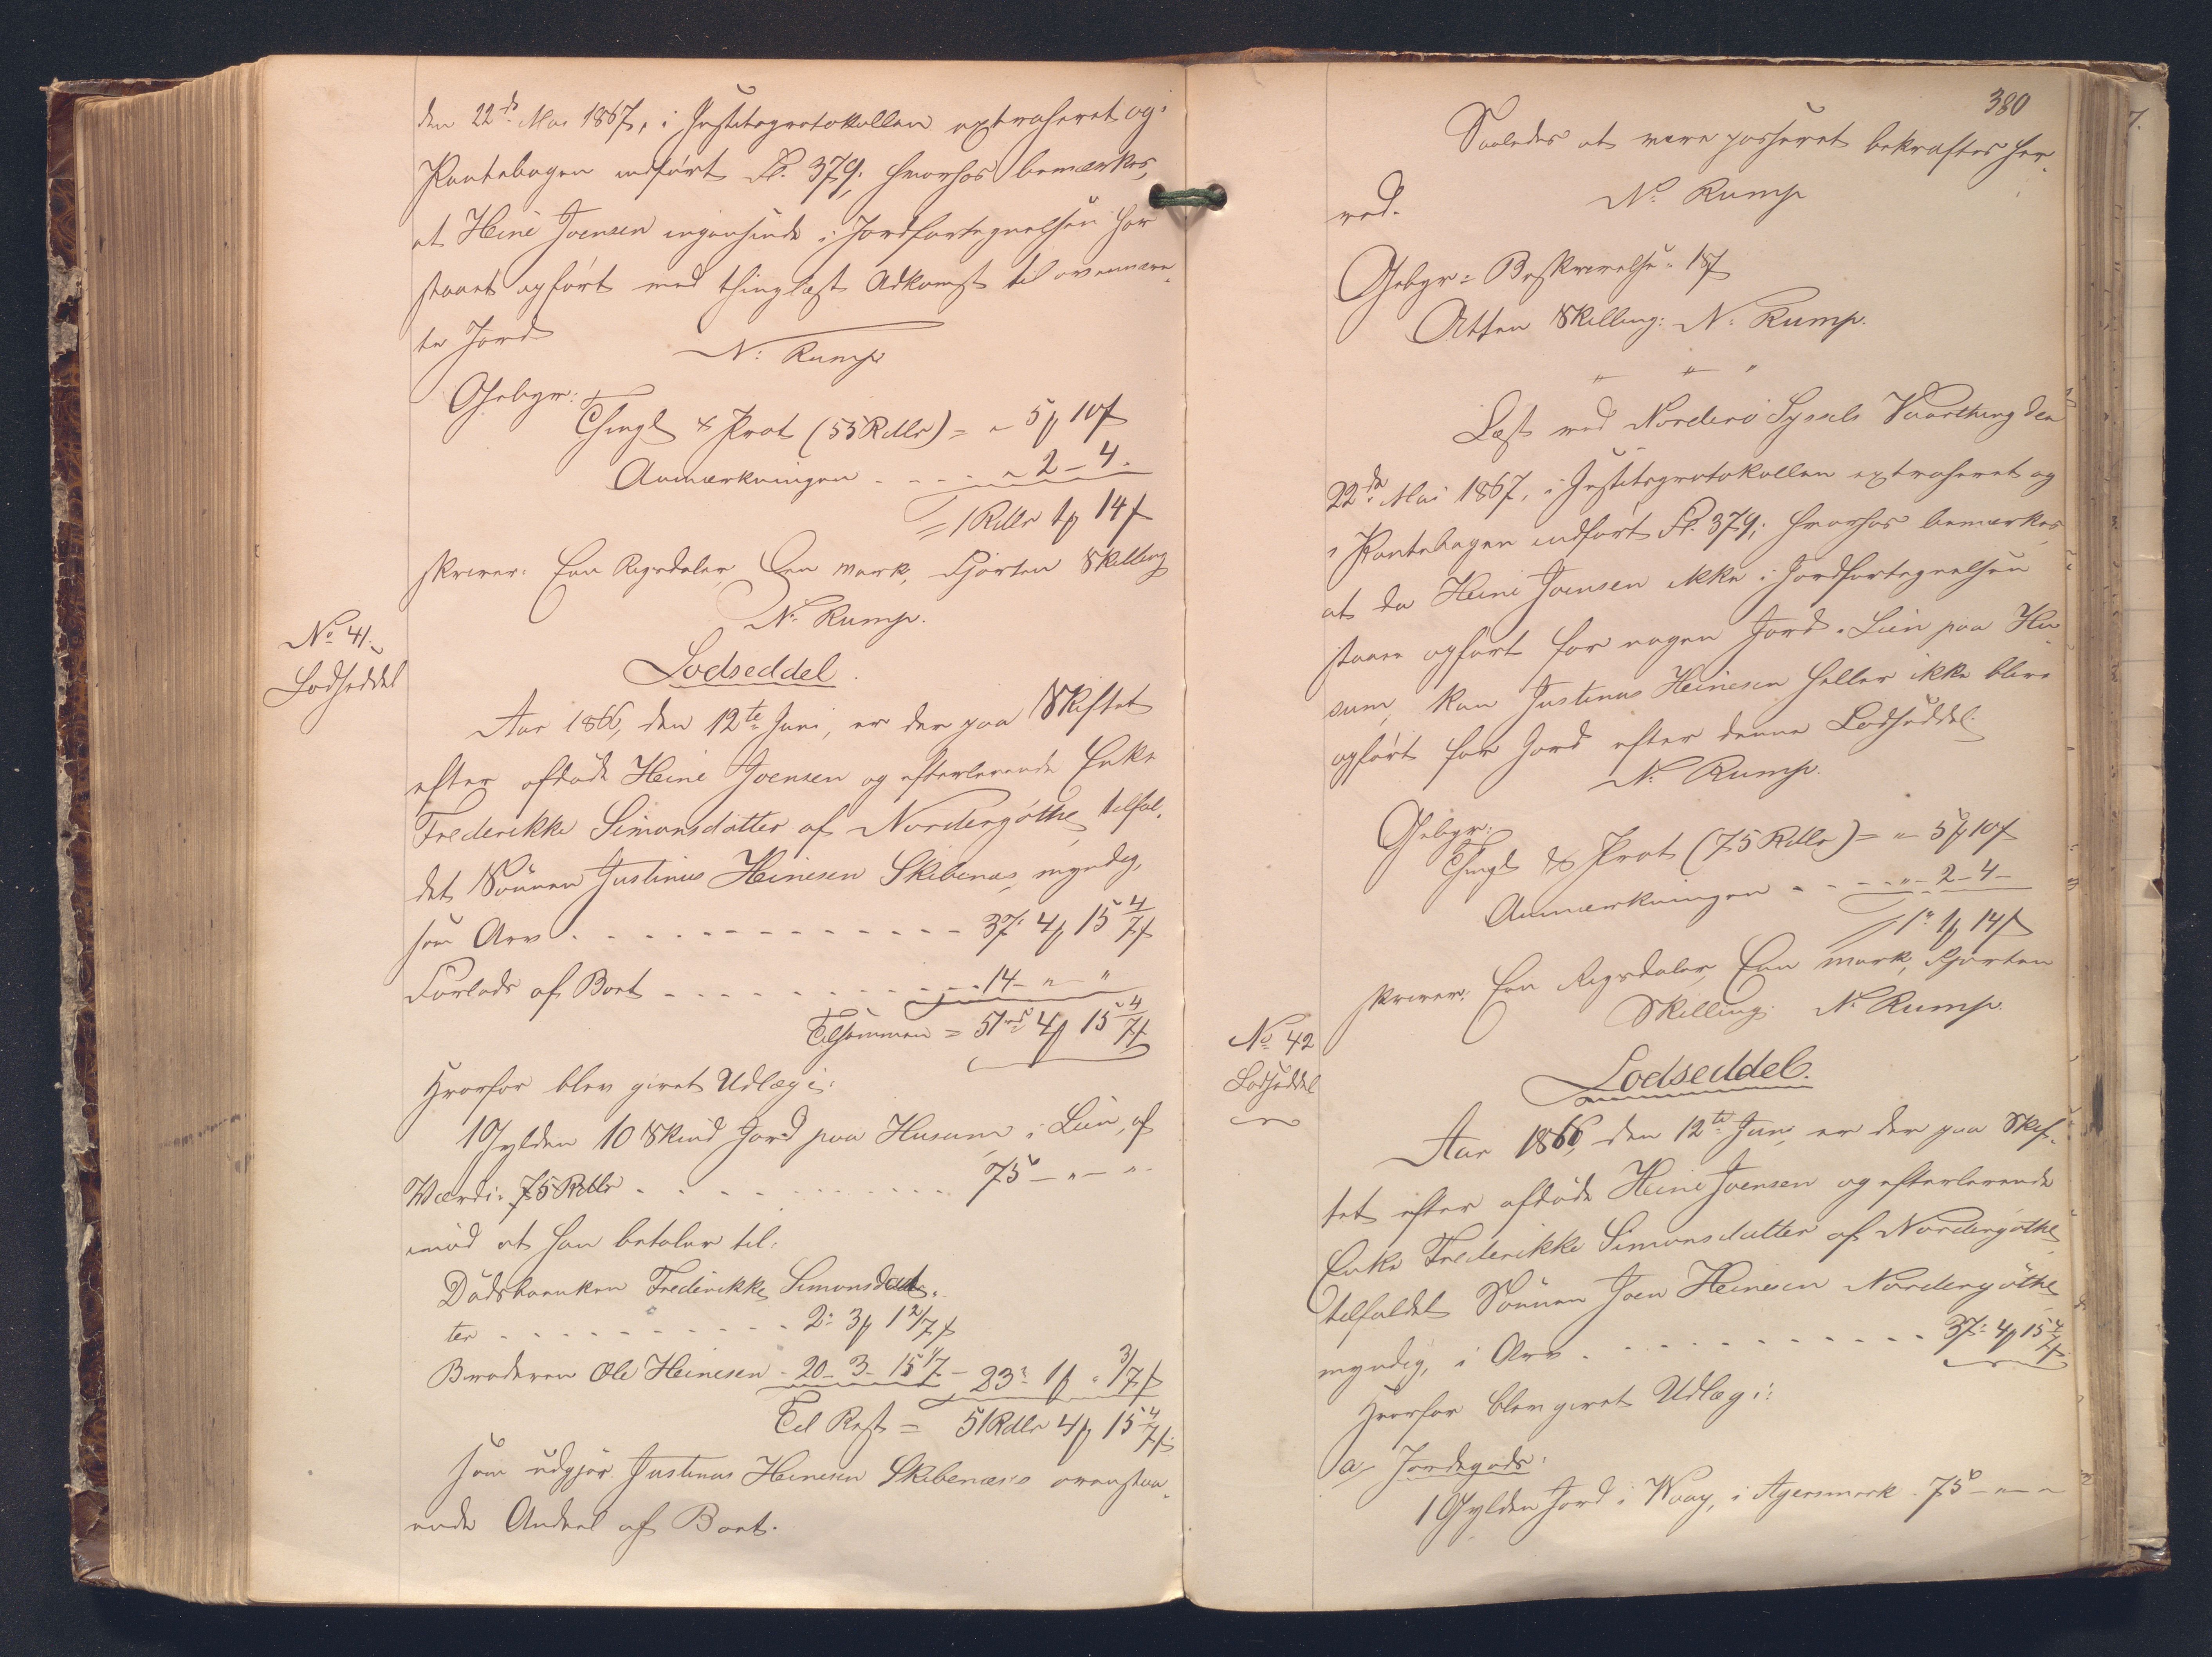 den 22de Mai 1867, i Justitsprotokollen extraheret og i
Pantebogen indført Fl. 379; hvorhos bemærkes,
at Heine Joensen ingensinde i Jordfortegnelsen har
staaet opført med thinglæst Adkomst til ovennævn-
te Jord
N. Rump
Gebyr:
Thingl & Prot (55 Rdlr) = " 5 ₰ 10 ß
Anmærkningen - - - " 2 - 4 -
= 1 Rdlr 1 ₰ 14 ß
skriver: Een Rigsdaler Een Mark, Fjorten Skilling
N. Rump.
No 41.
Lodseddel
Lodseddel.
Aar 1866, den 12te Juni, er der paa Skiftet
efter afdøde Heine Joensen og efterlevende Enke
Frederikke Simonsdatter af Nordregøthe, tilfal-
det Sønnen Justinus Heinesen Skibenæs, myndig,
som Arv - - - 37. 4 ₰ 15 4/7 ß
Forlods af Boet - - - 14 - " "
Tilsammen = 51 rd 4 ₰ 15 4/7 ß
Hvorfor blev givet Udlæg i:
1 Gylden 10 Skind Jord paa Husum i Lun, af
Værdi: 75 Rdlr - - - 75 - " - "
imod at han betaler til:
Dødsboenken Frederikke Simonsdat-
ter - - - 2. 3 ₰ 1 2/7 ß
Broderen Ole Heinesen - 20 - 3 - 15 1/7 - 23. 1 ₰ " 3/7 ß
Til Rest = 51 Rdlr 4 ₰ 15 4/7 ß
som udgjør Justinus Heinesen Skibenæs's ovenstaa-
ende Andeel af Boet.
380
Saaledes at være passeret bekræftes her-
ved.
N. Rump
Gebyr: Beskrivelse: 18 ß
Atten Skilling: N. Rump.
" " "
Læst ved Norderø Syssels Vaarthing den
22de Mai 1867, i Justitsprotokollen extraheret og
i Pantebogen indført Fl. 379; hvorhos bemærkes,
at da Heine Joensen ikke i Jordfortegnelsen
staaer opført for nogen Jord i Lun paa Hu-
sum, kan Justinus Heinesen heller ikke blive
opført for Jord efter denne Lodseddel.
N. Rump.
Gebyr:
Thingl & Prot (75 Rdlr) = " 5 ₰ 10 ß
Anmærkningen - - - " 2 - 4 -
1 " 1 ₰ 14 ß
skriver: Een Rigsdaler, Een Mark, Fjorten
Skilling. N. Rump.
No 42
Lodseddel
Lodseddel.
Aar 1866, den 12te Juni er der paa Skif-
tet efter afdøde Heine Joensen og efterlevende
Enke Frederikke Simonsdatter af Nordregøthe,
tilfaldet Sønnen Joen Heinesen Nordregøthe,
myndig, i Arv - - - 37. 4 ₰ 15 4/7 ß
Hvorfor blev givet Udlæg i:
a, Jordegods:
1 Gylden Jord i Waag, i Agersmork - 75 - " - "